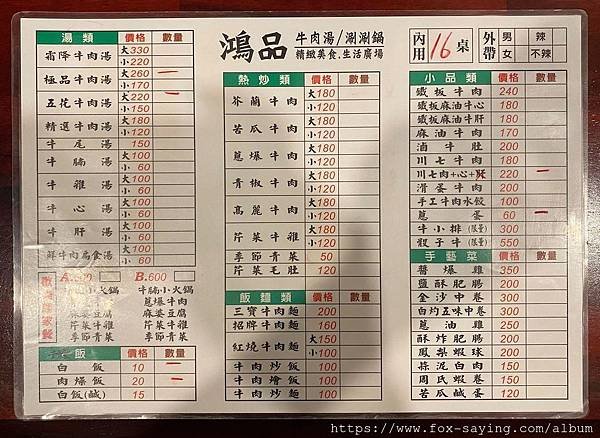 鴻品 牛肉湯/涮涮鍋
精緻美食.生活廣場
內用 16 桌
外帶 男 女 辣 不辣
湯類 價格 數量
霜降牛肉湯 大 330 小 220
極品牛肉湯 大 260 小 170
五花牛肉湯 大 220 小 150
精選牛肉湯 大 180 小 120
牛尾湯 150
牛腩湯 大 100 小 60
牛雜湯 大 100 小 60
牛心湯 大 100 小 60
牛肝湯 大 100 小 60
鮮牛肉扁食湯 大 100 小 60
B.600
小火鍋 牛腩小火鍋
蔥爆牛肉
麻婆豆腐 麻婆豆腐
芹菜牛雜 芹菜牛雜
季節青菜 季節青菜
飯 價格 數量
白飯 10
肉燥飯 20
白飯(鹹) 15
熱炒類 價格 數量
芥蘭牛肉 大 180 小 120
苦瓜牛肉 大 180 小 120
蔥爆牛肉 大 180 小 120
青椒牛肉 大 180 小 120
高麗牛肉 大 180 小 120
芹菜牛雜 大 180 小 120
季節青菜 50
芹菜毛肚 120
飯麵類 價格 數量
三寶牛肉麵 200
招牌牛肉麵 160
紅燒牛肉麵 大 150 小 100
牛肉炒飯 100
牛肉燴飯 100
牛肉炒麵 100
小品類 價格 數量
鐵板牛肉 240
鐵板麻油牛心 180
鐵板麻油牛肝 180
麻油牛肉 170
滷牛肚 120
川七牛肉 180
川七肉+心+肝 220
滑蛋牛肉 200
手工牛肉水餃 100
蔥蛋 60
牛小排(限量) 500
骰子牛(限量) 550
手藝菜 價格 數量
醬爆雞 350
鹽酥肥腸 200
金沙中卷 300
白灼五味中卷 300
蔥油雞 350
酥炸肥腸 200
鳳梨蝦球 200
蒜泥白肉 150
周氏蝦卷 150
苦瓜鹹蛋 120
https://www.fox-saying.com/album